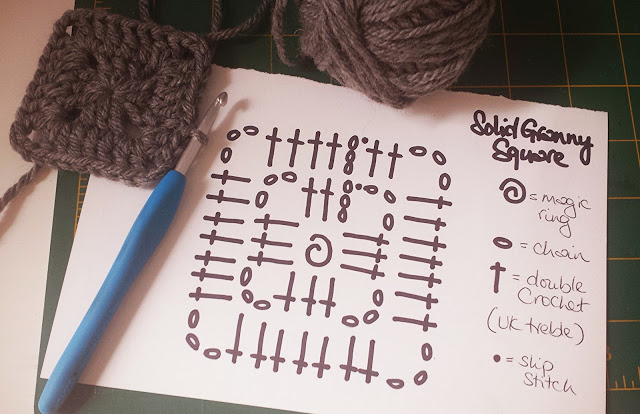 Solid Granny
Square
= magic
ring
= chain
= double
Crochet
(UK treble)
= slip
stitch